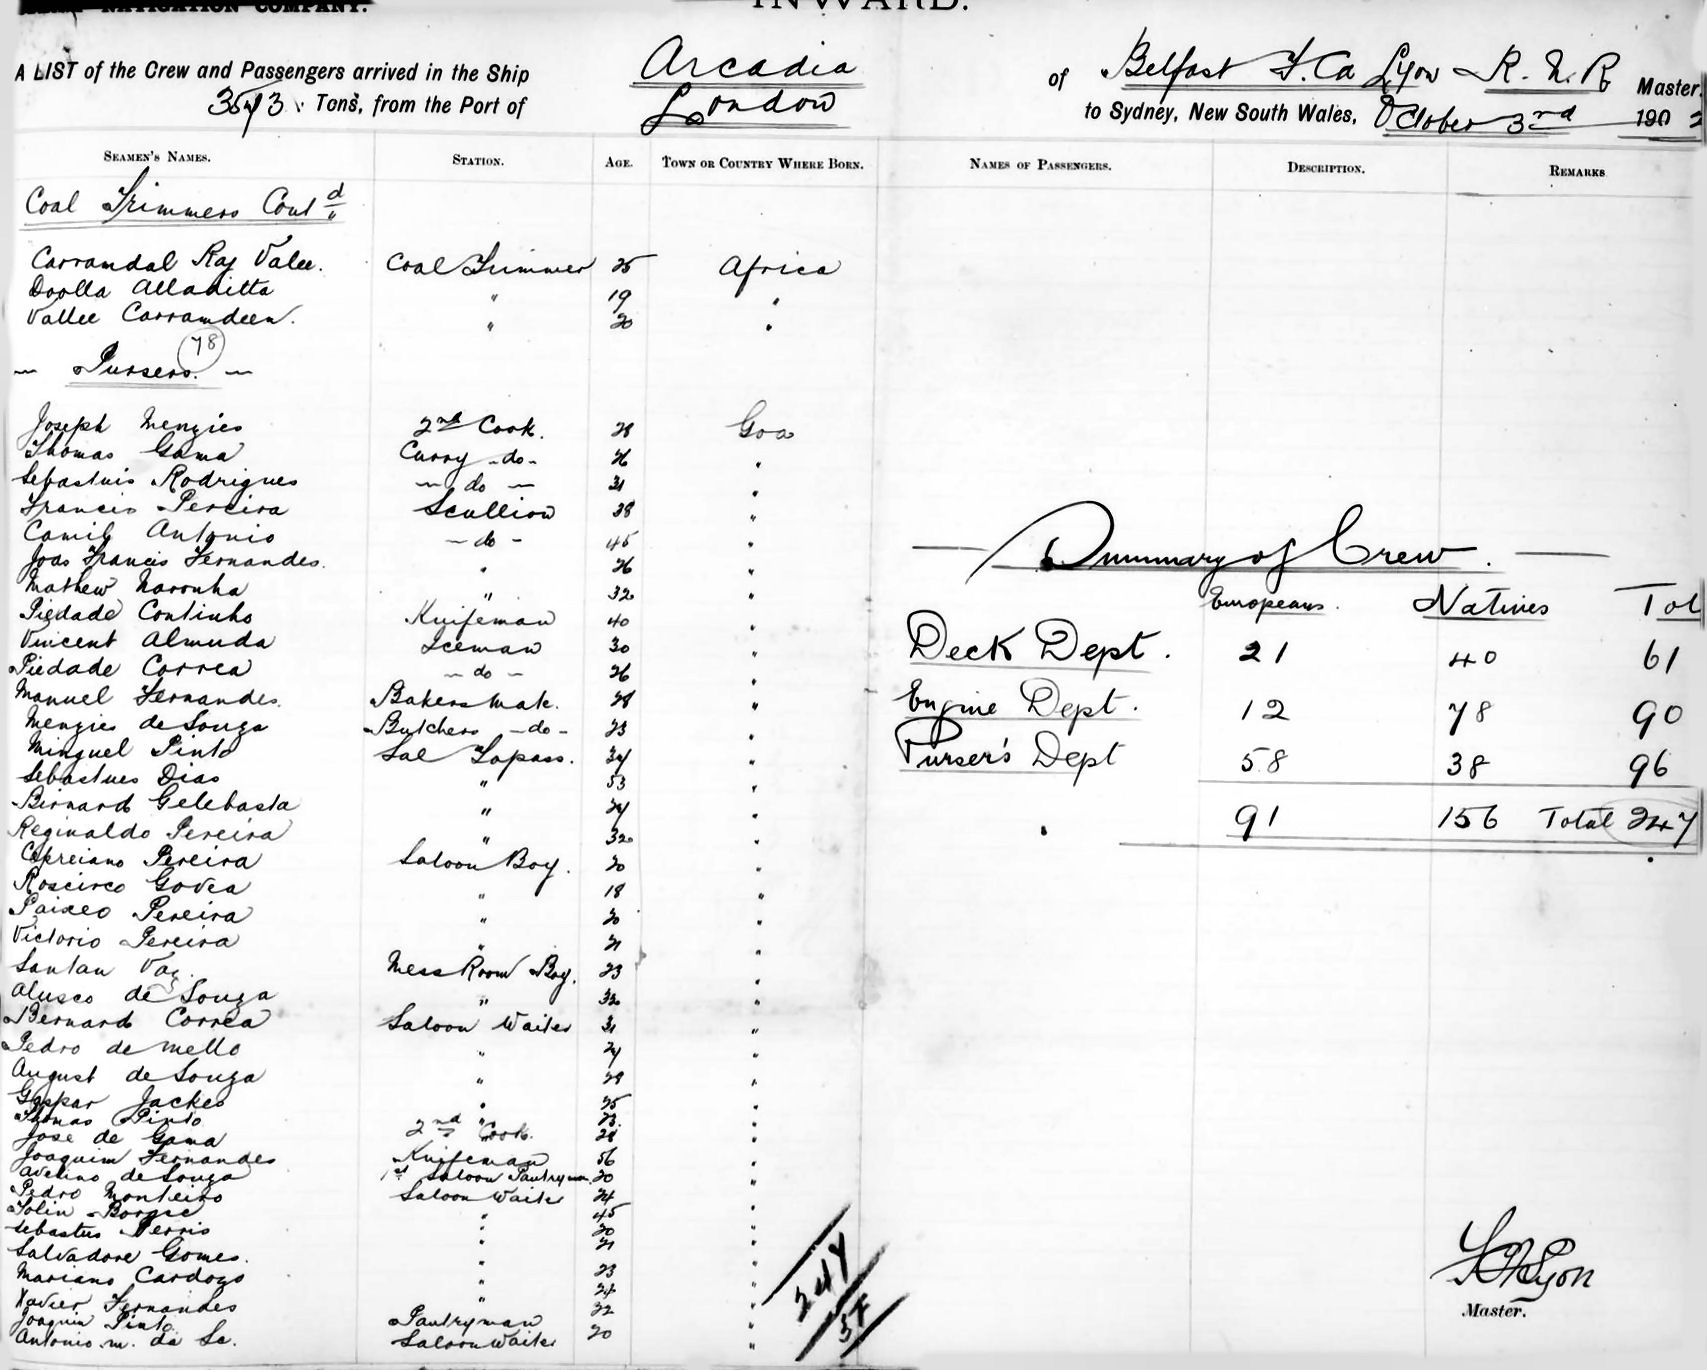 NAVIGATION COMPANY.
INWARD.
A LIST of the Crew and Passengers arrived in the Ship Arcadia of Belfast F. Ca Lyon R.N.R Master,
Tons, from the Port of London to Sydney, New South Wales, October 3rd 190
SEAMEN'S NAMES. STATION. AGE. TOWN OR COUNTRY WHERE BORN. NAMES OF PASSENGERS. DESCRIPTION. REMARKS
Coal Trimmers Contd
Carramdal Raj Valee. Coal Trimmer 25 Africa
Doolla Alladitta " 19 "
Vallee Carramdeen. " 20 "
78
— Pursers. —
Joseph Menzies 2nd Cook. 28 Goa
Thomas Gama Curry -do- 26 "
Sebastnis Rodrigues — do — 31 "
Francis Pereira Scullion 38 "
Camilo Antonio - do - 45 "
Joas Francis Fernandes. " 26 "
Mathew Naronha " 32 "
Piedade Continho Knifeman 40 "
Vincent Almuda Iceman 30 "
Piedade Correa - do - 26 "
Manuel Fernandes. Bakers Mate. 28 "
Menzies de Souza Butchers -do- 23 "
Minguel Pinto Sal Topass. 34 "
Sebastues Dias " 53 "
Birnard Gelebasta " 24 "
Reginaldo Pereira " 32 "
Cipreiano Pereira Saloon Boy. 20 "
Roseireo Govea " 18 "
Paixeo Pereira " 20 "
Victorio Pereira " 21 "
Santan Vaz. Mess Room Boy. 23 "
Aluseo de Souza " 32 "
Bernard Correa Saloon Waiter 31 "
Pedro de Mello " 24 "
August de Souza " 28 "
Gaspar Jackes " 25 "
Thomas Pinto " 23 "
Jose de Gama 2nd Cook. 28 "
Joaquim Fernandes Knifeman 56 "
Avelino de Souza 1st Saloon Pantryman 30 "
Pedro Monteiro Saloon Waiter 24 "
Borgse " 45 "
Sebastus Ferris " 20 "
Salvadore Gomes. " 21 "
Mariano Cardozo " 23 "
Xavier Fernandes " 24 "
Joaquim Pinto Pantryman 32 "
Antonio. m. da Sa. Saloon Waiter 20 "
247
57
— Summary of Crew. —
Europeans. Natives Tot
Deck Dept. 21 40 61
Engine Dept. 12 78 90
Purser's Dept 58 38 96
91 156 Total 247
Lyon
Master.